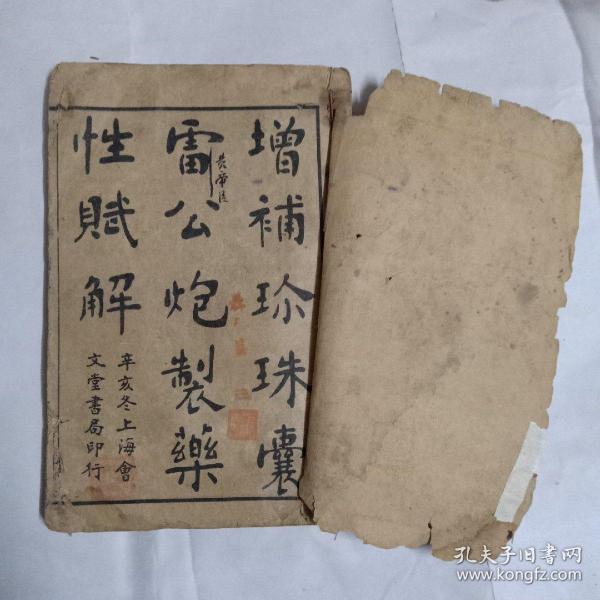 增補珍珠囊
雷公炮製藥
性賦解
黃帝臣
辛亥冬上海會
文堂書局印行
孔夫子旧书网
www.kongfz.com